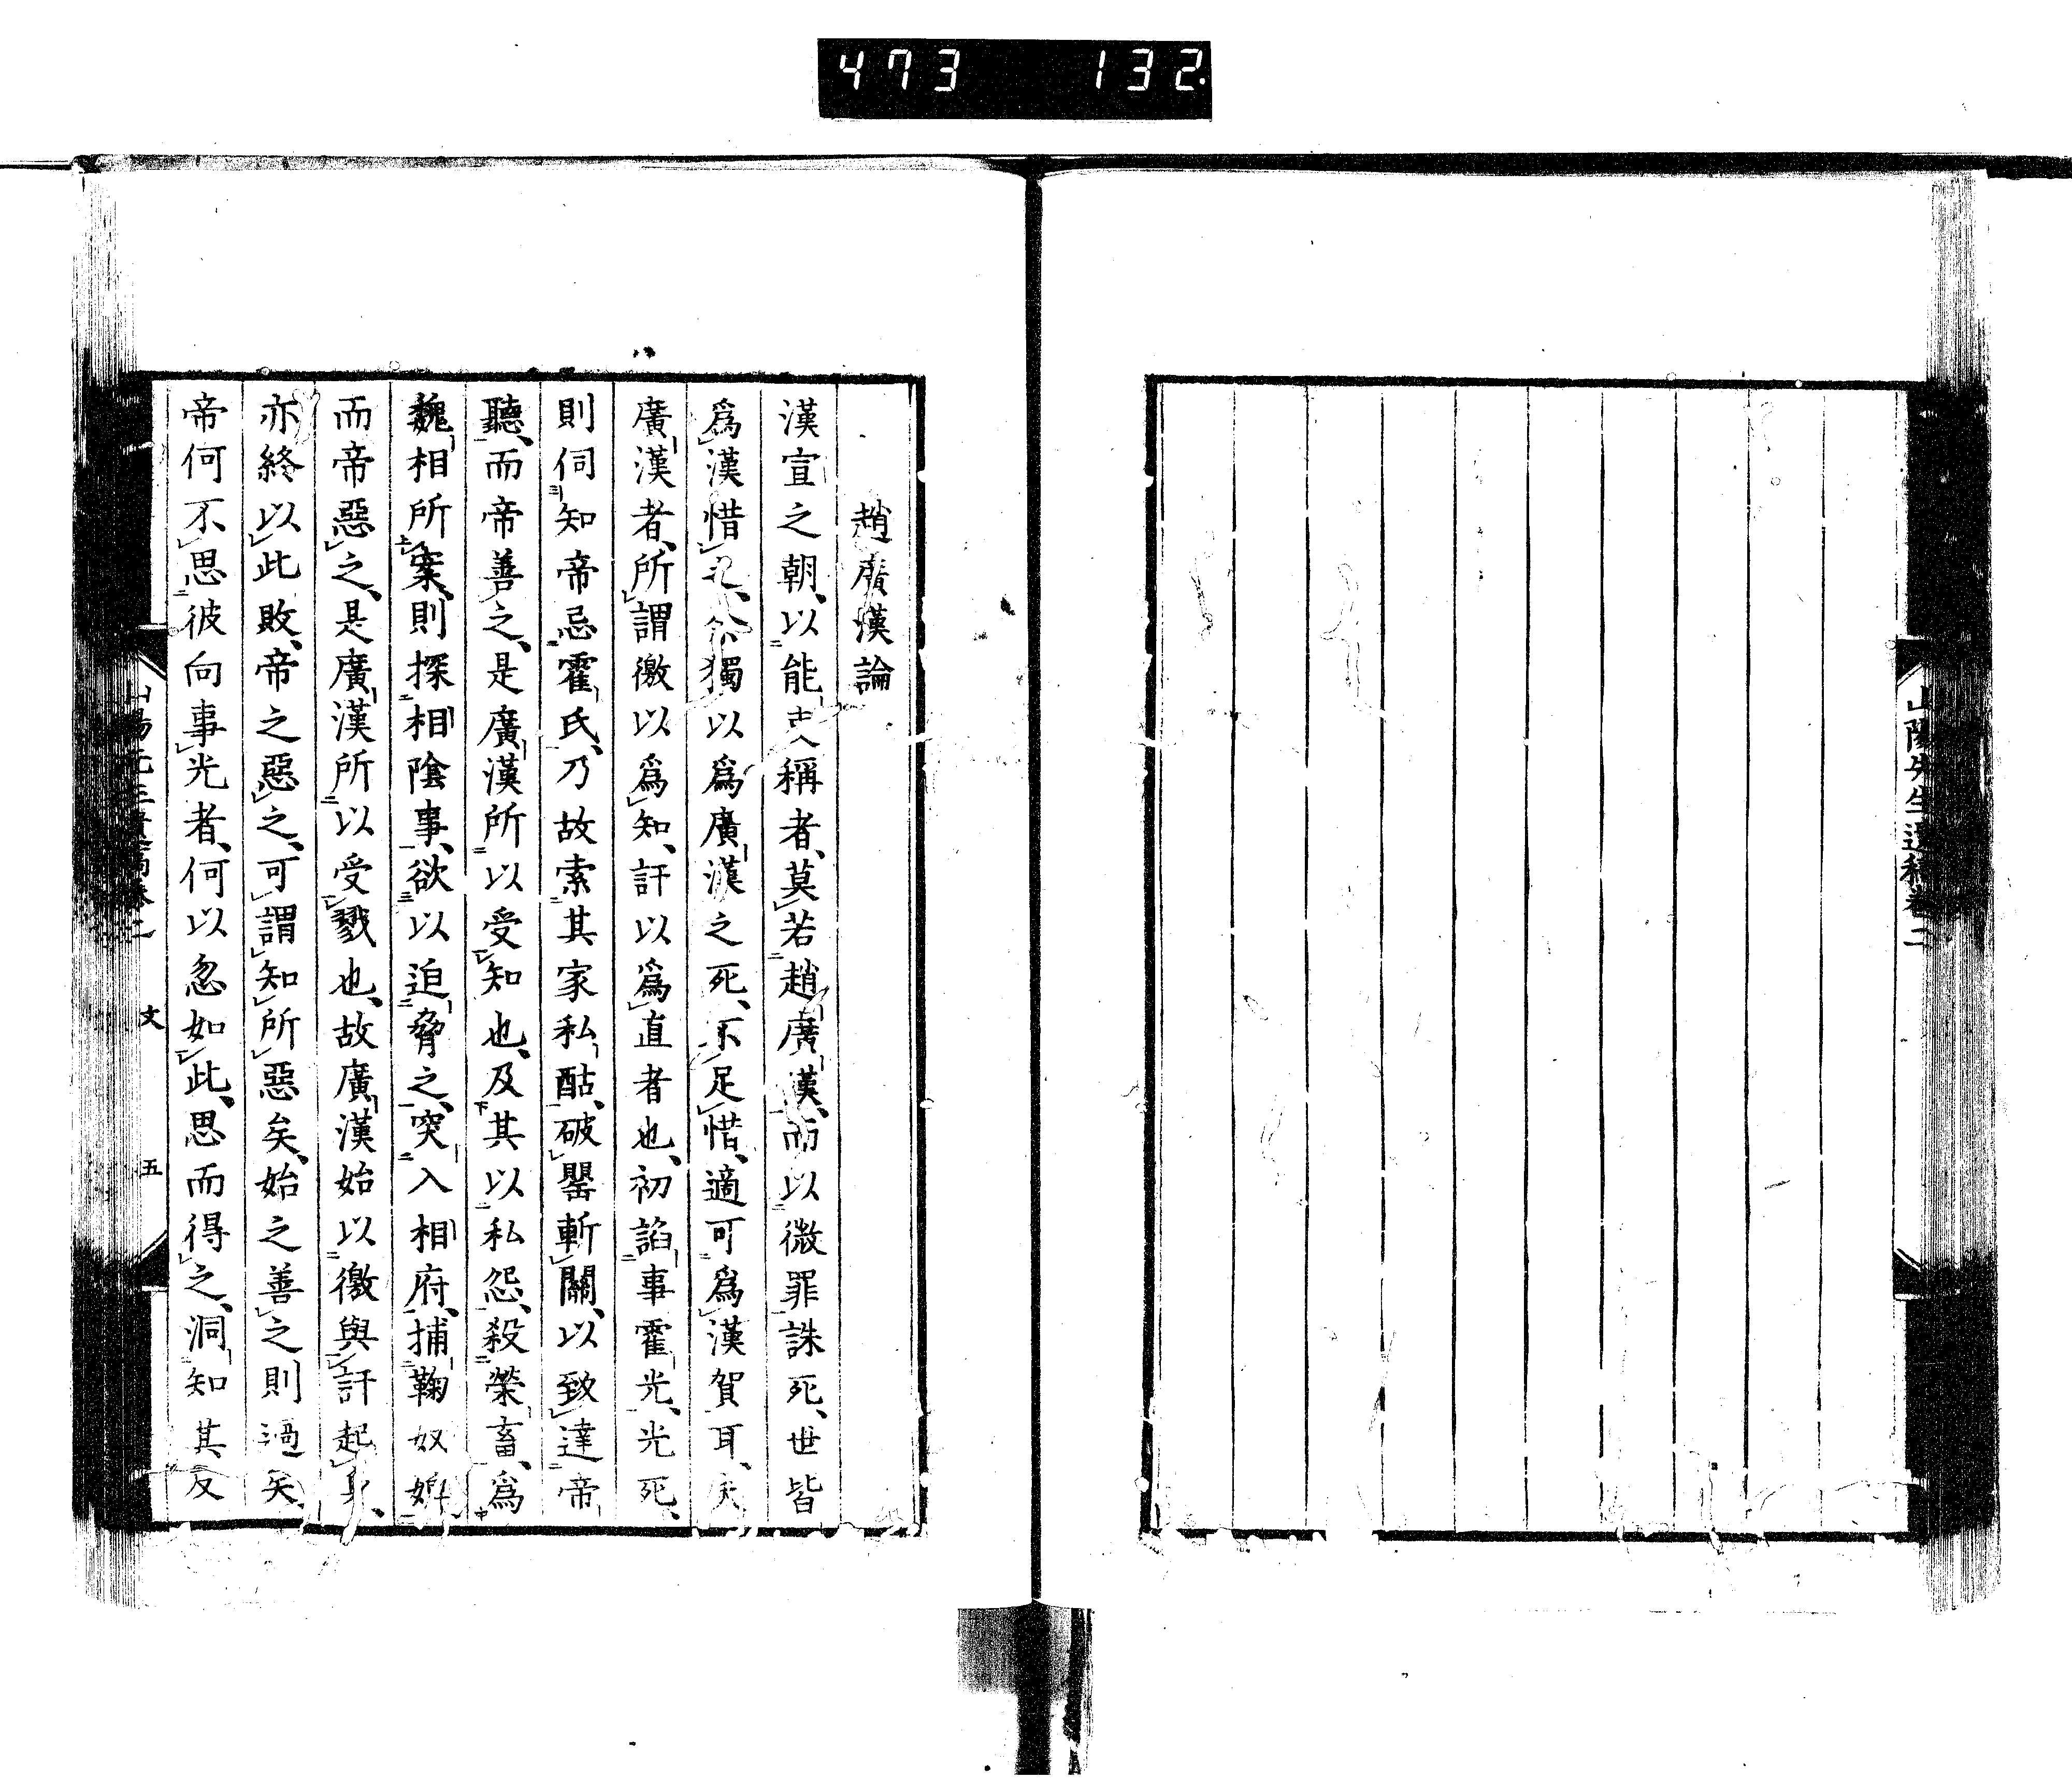 473 132
山陽先生遺稿卷二
趙廣漢論
漢宣之朝、以能吏稱者、莫若趙廣漢、而以微罪誅死、世皆
爲漢惜之、余獨以爲廣漢之死、不足惜、適可爲漢賀耳、夫
廣漢者、所謂徼以爲知、訐以爲直者也、初諂事霍光、光死、
則伺知帝忌霍氏、乃故索其家私酤、破罌斬關、以致達帝
聽、而帝善之、是廣漢所以受知也、及其以私怨、殺榮畜、爲
魏相所案、則探相陰事、欲以迫脅之、突入相府、捕鞠奴婢、
而帝惡之、是廣漢所以受戮也、故廣漢始以徼與訐起身、
亦終以此敗、帝之惡之、可謂知所惡矣、始之善之則過矣、
帝何不思彼向事光者、何以忽如此、思而得之、洞知其反
山陽先生遺稿卷二 文 五